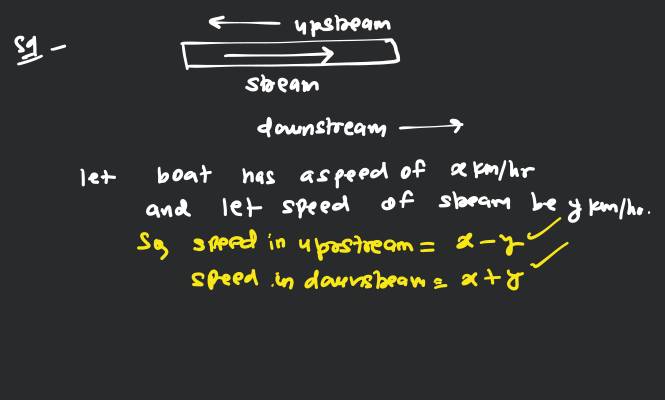 ← upstream
Sol -
stream
downstream →
let boat has a speed of x km/hr
and let speed of stream be y km/hr.
So speed in upostream = x - y ✓
speed in downstream = x + y ✓